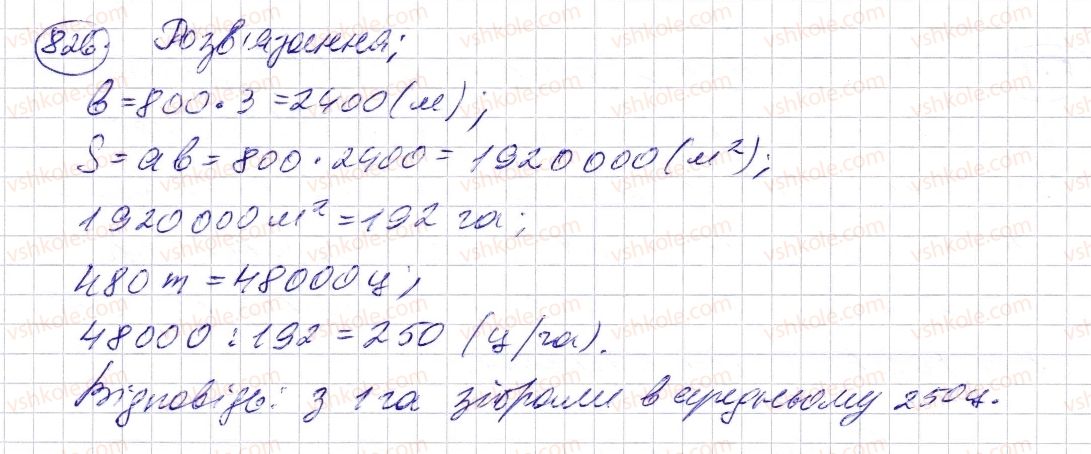 826. Розв'язання;
в = 800 · 3 = 2400 (м);
S = ав = 800 · 2400 = 1920000 (м²);
1920000 м² = 192 га;
480 т = 48000 ц;
48000 : 192 = 250 (ц/га).
Відповідь: з 1 га зібрали в середньому 250 ц.